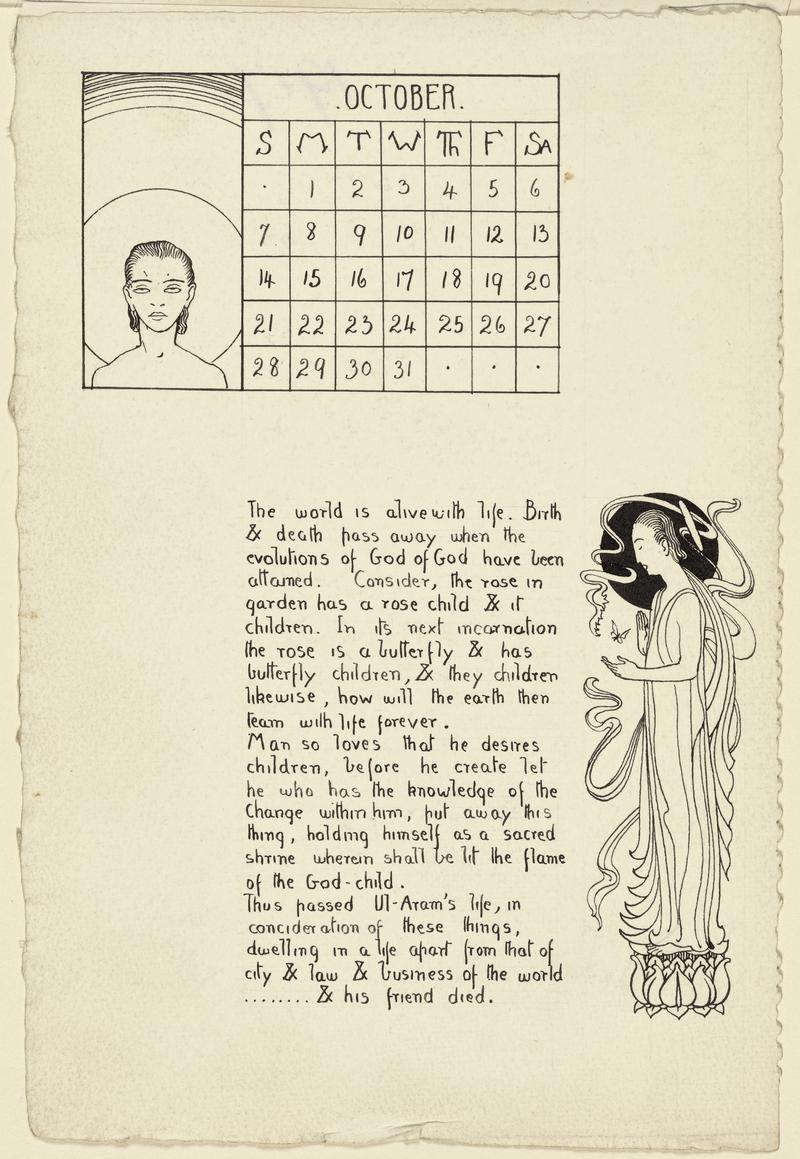 .OCTOBER.
S M T W Th F SA
· 1 2 3 4 5 6
7 8 9 10 11 12 13
14 15 16 17 18 19 20
21 22 23 24 25 26 27
28 29 30 31 · · ·
The world is alive with life. Birth
& death pass away when the
evolutions of God of God have been
attained. Consider, the rose in
garden has a rose child & it
children. In its next incarnation
the rose is a butterfly & has
butterfly children, & they children
likewise, how will the earth then
team with life forever.
Man so loves that he desires
children, before he create let
he who has the knowledge of the
Change within him, put away this
thing, holding himself as a sacred
shrine wherein shall be lit the flame
of the God-child.
Thus passed Ul-Aram's life, in
concideration of these things,
dwelling in a life apart from that of
city & law & business of the world
........ & his friend died.